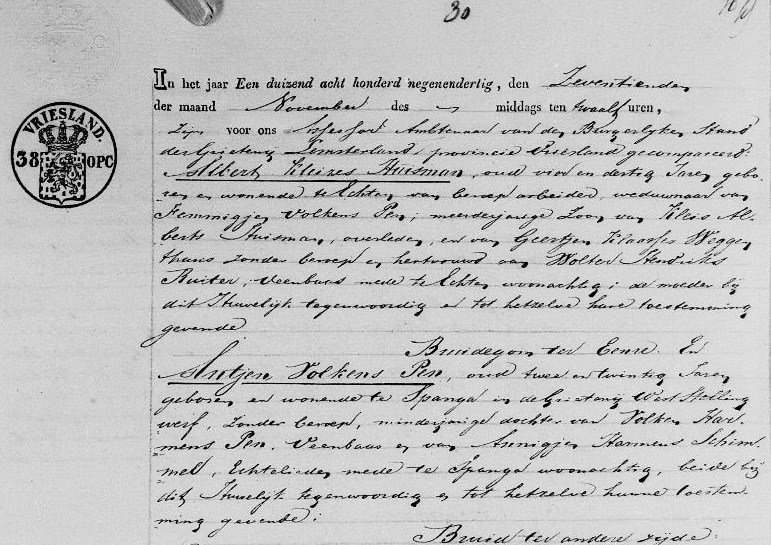 30
VRIESLAND.
38 OPC
In het jaar Een duizend acht honderd negenendertig, den Zeventienden
der maand November des middags ten twaalf uren,
Zijn voor ons Assessor Ambtenaar van den Burgerlyken Stand
der Grietenij Lemsterland, provincie Vriesland gecompareerd:
Albert Kleizes Huisman, oud vier en dertig Jaren gebo-
ren en wonende te Echten van beroep arbeider, weduwnaar van
Femmigjen Volkens Pen; meerderjarige Zoon van Kleis Al-
berts Huisman, overleden, en van Geertjen Klaasses Weggen
thans zonder beroep en hertrouwd aan Wolter Hendriks
Ruiter, Veenbaas mede te Echten woonachtig; de moeder bij
dit Huwelijk tegenwoordig en tot hetzelve hare toestemming
gevende
Bruidegom ter Eenre. En
Antjen Volkens Pen, oud twee en twintig Jaren
geboren en wonende te Spanga in de Grietenij West Stelling
werf, Zonder beroep, minderjarige dochter van Volken Har-
mens Pen, Veenbaas en van Annigjen Harmens Schim-
mel, Echtelieden mede te Spanga woonachtig, beide bij
dit Huwelijk tegenwoordig en tot hetzelve hunne toestem-
ming gevende;
Bruid ter andere zijde.